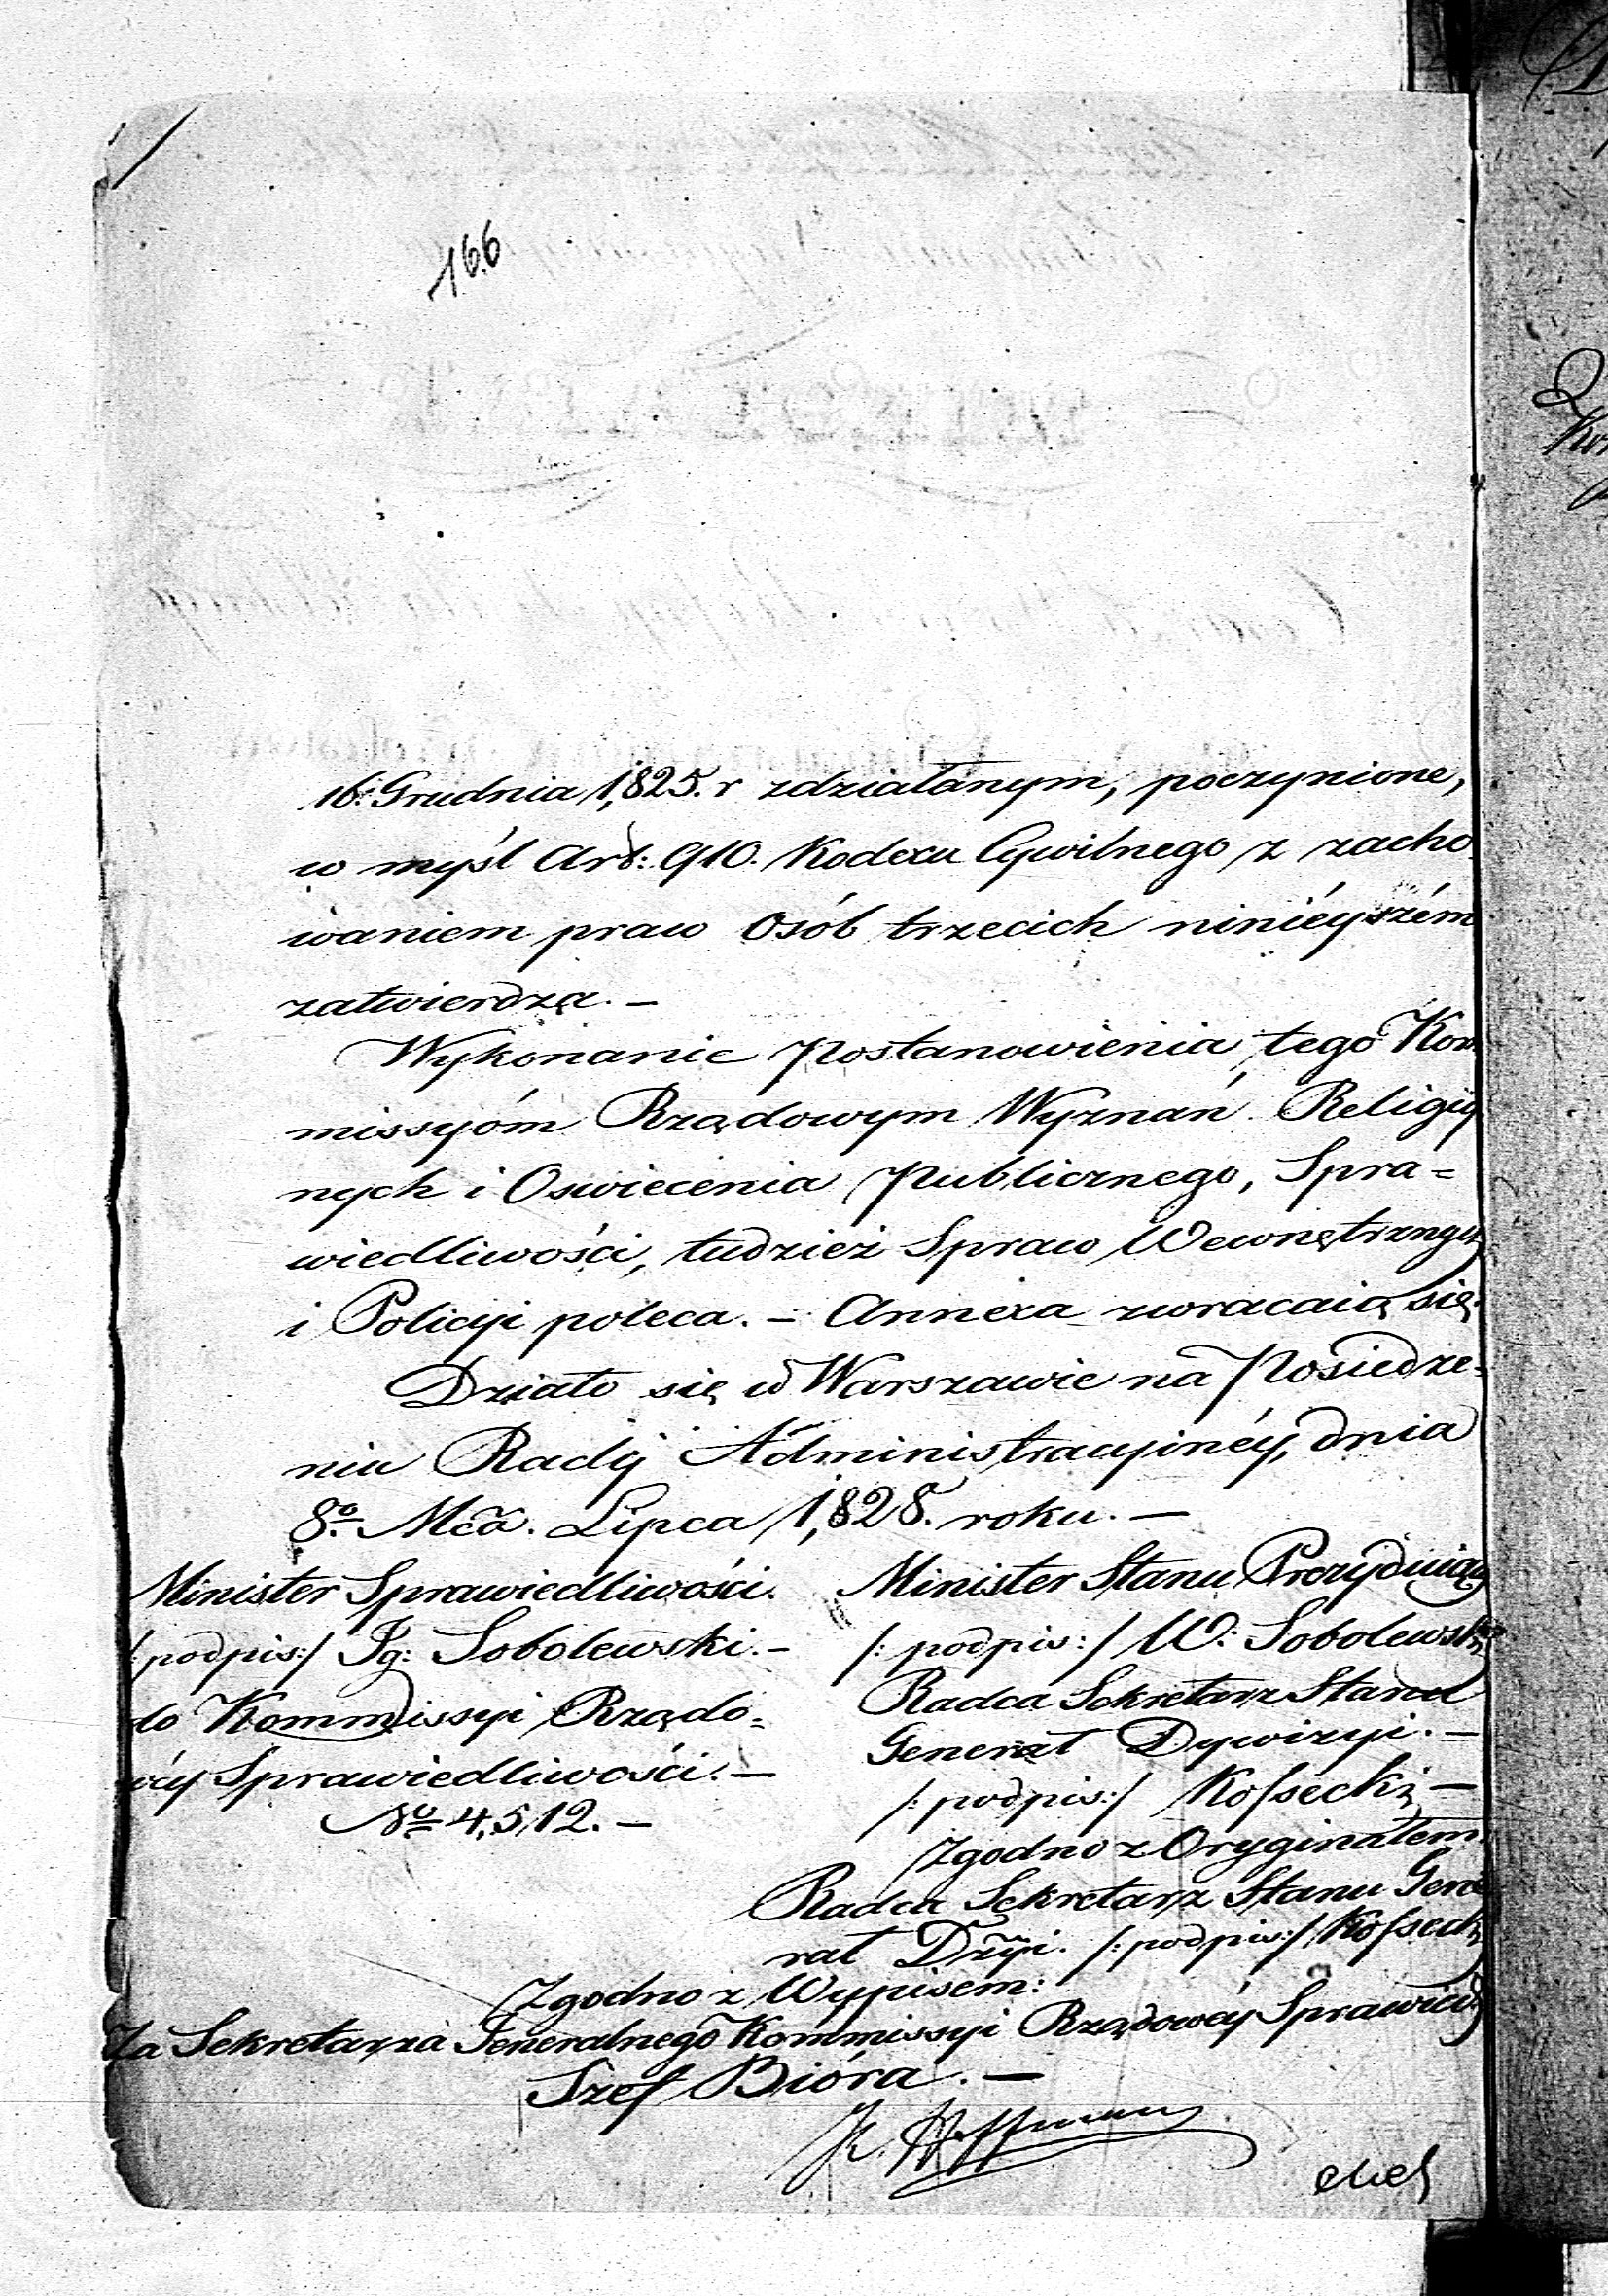 166
16: Grudnia 1,825. r zdziałanym, poczynione,
w myśl Art: 910. Kodexu Cywilnego z zacho
waniem praw Osób trzecich ninieyszém
zatwierdza. —
Wykonanie Postanowienia tego Kom
missyóm Rządowym Wyznań Religiy
nych i Oswiecenia Publicznego, Spra=
wiedliwości, tudzież Spraw Wewnętrzny
i Policyi poleca. — Annexa zwracaią się.
Działo się w Warszawie na Posiedze=
niu Rady Administracyinéy, dnia
8º Mca. Lipca 1,828. roku. —
Minister Sprawiedliwości.
/: podpis:/ Ig: Sobolewski. —
do Kommissyi Rządo=
wéy Sprawiedliwości. —
Nº 4,512. —
Minister Stanu Prezyduiący
/: podpis:/ W: Sobolewski
Radca Sekretarz Stanu
Generał Dywizyi. —
/: podpis:/ Kossecki —
Zgodno z Oryginałem
Radca Sekretarz Stanu Gene
rał Dzyi. /: podpis:/ Kossecki
Zgodno z Wypisem:
Za Sekretarza Generalnego Kommissyi Rządowéy Sprawied:
Szef Bióra. —
K. Hoffman